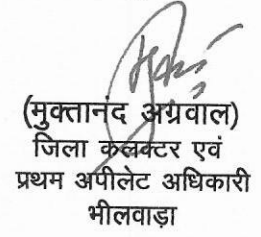 (मुक्तानंद अग्रवाल)
जिला कलक्टर एवं
प्रथम अपीलेट अधिकारी
भीलवाड़ा